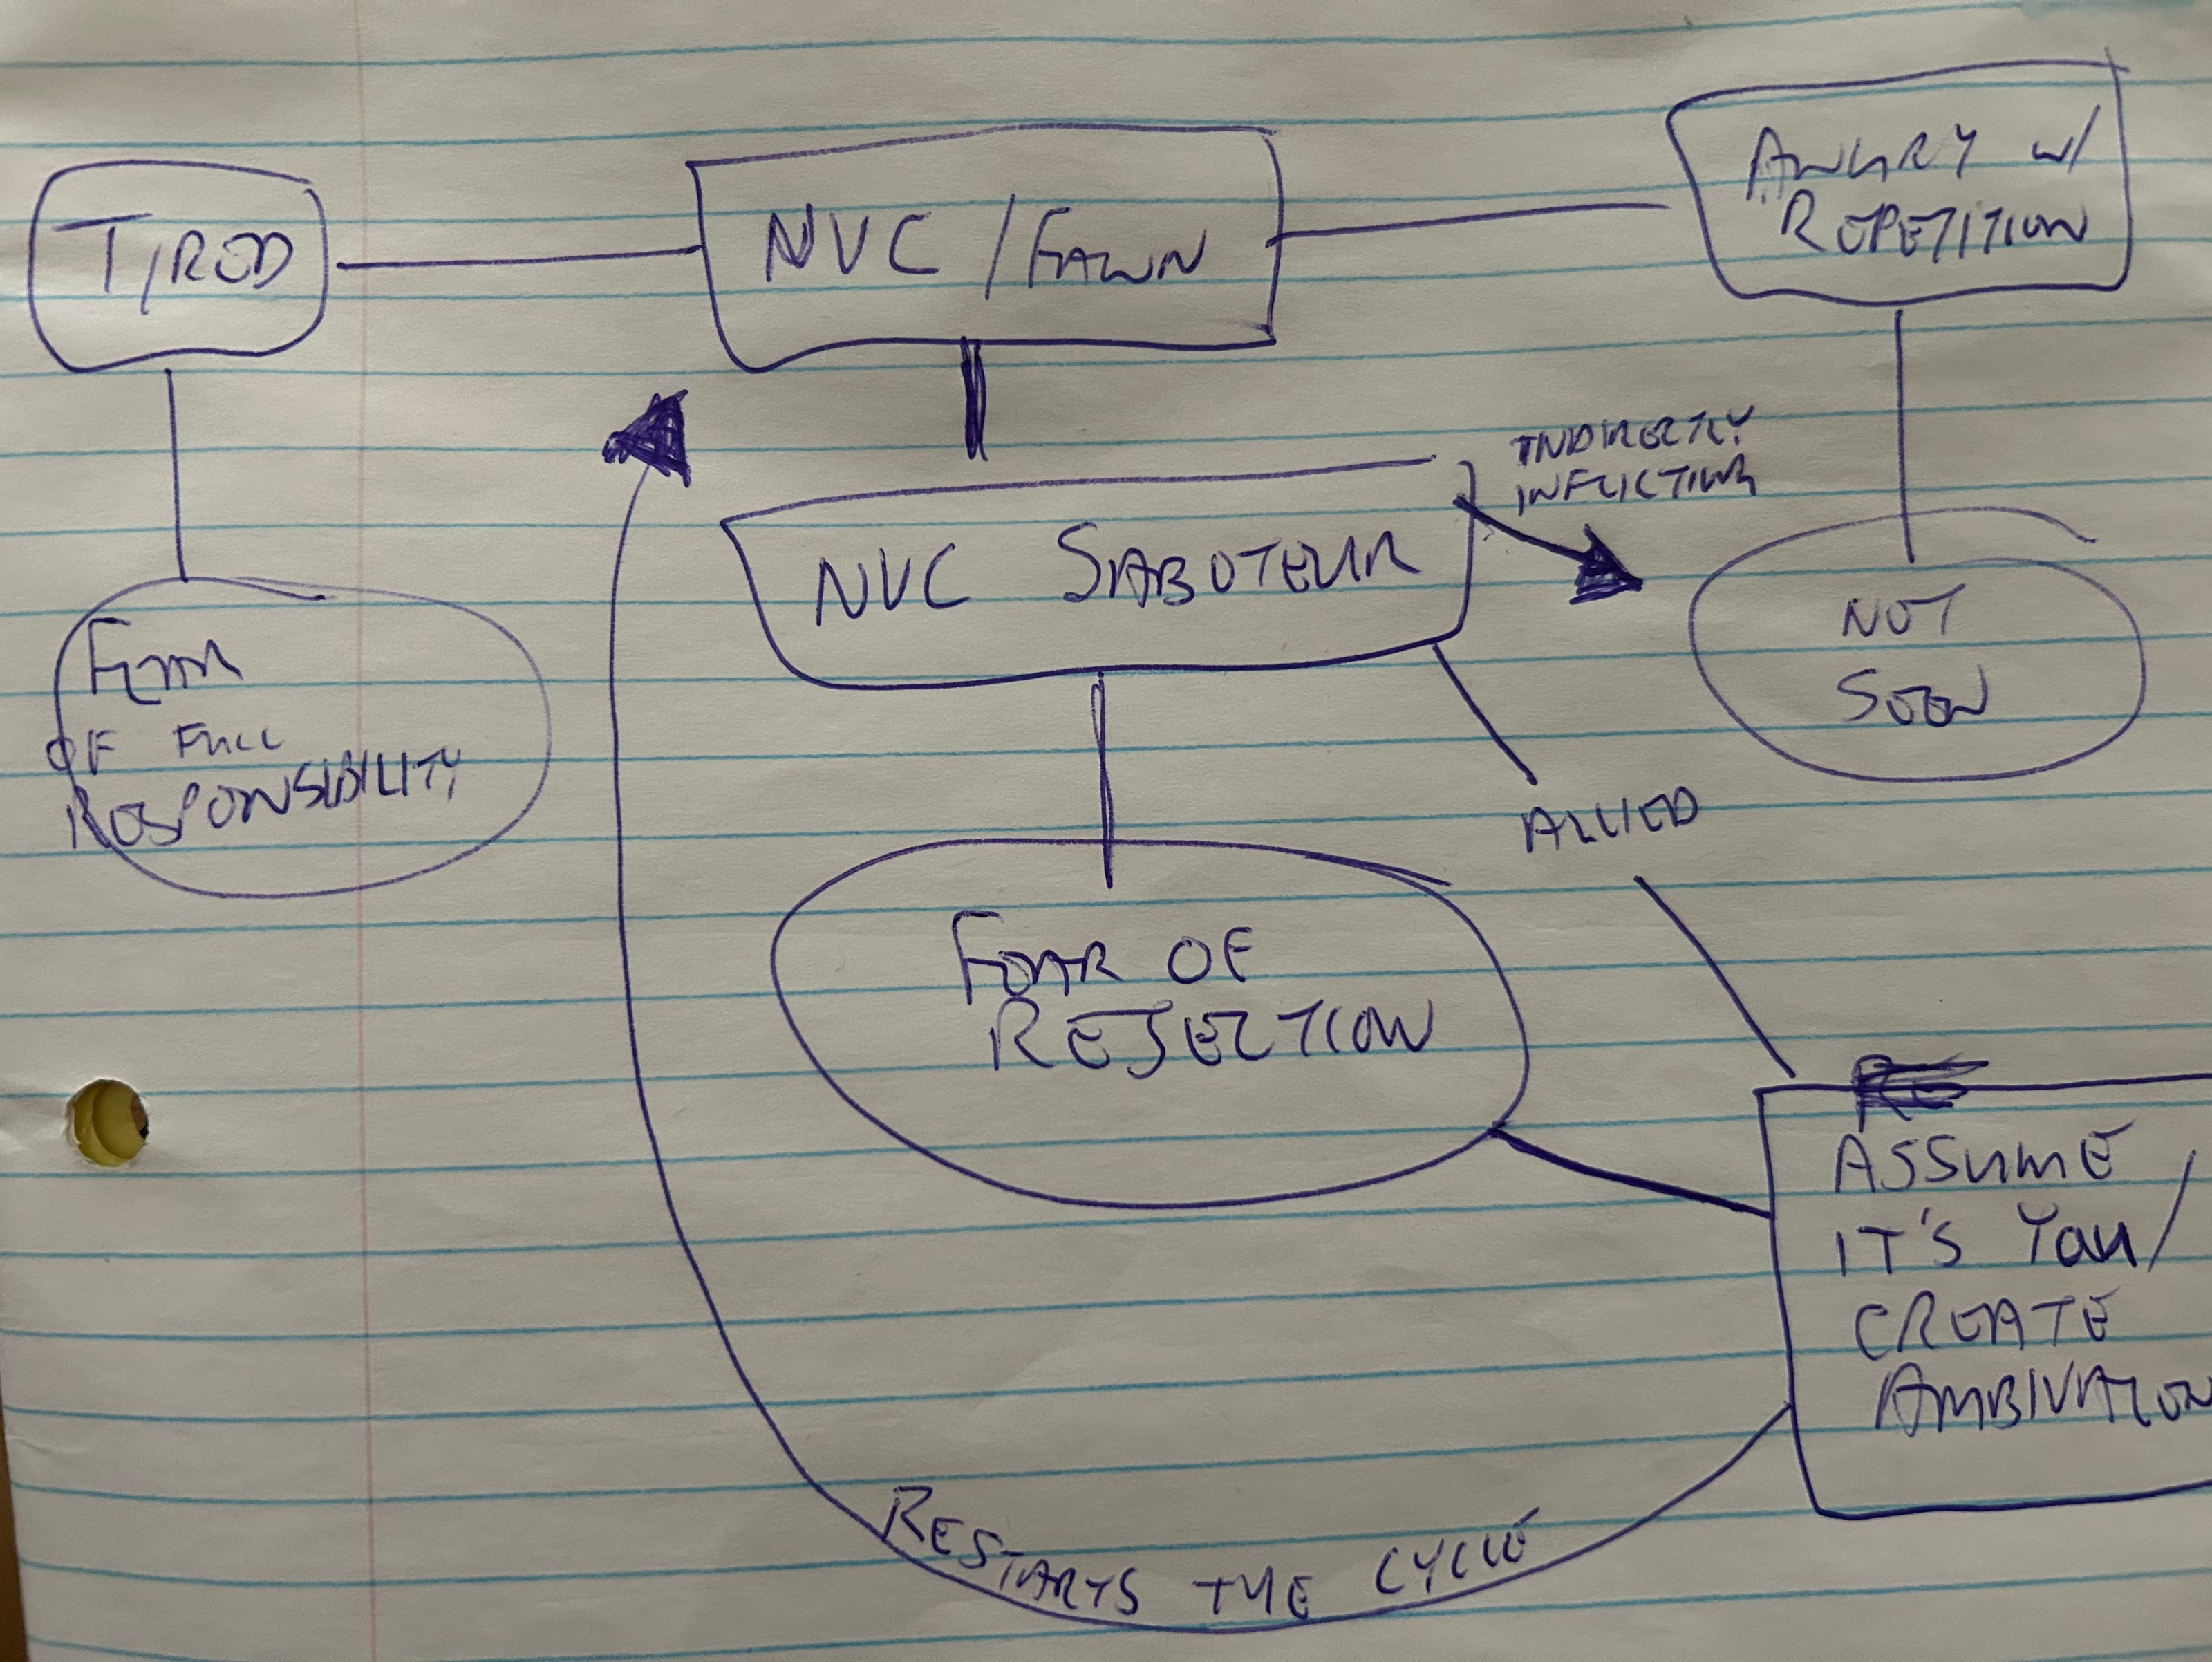 TIRED
NVC / FAWN
ANGRY W/
REPETITION
FEAR
OF FULL
RESPONSIBILITY
NVC SABOTEUR
INDIRECTLY
INFLICTING
NOT
SEEN
ALLIED
FEAR OF
REJECTION
RE
ASSUME
IT'S YOU/
CREATE
AMBIVALEN
RESTARTS THE CYCLE